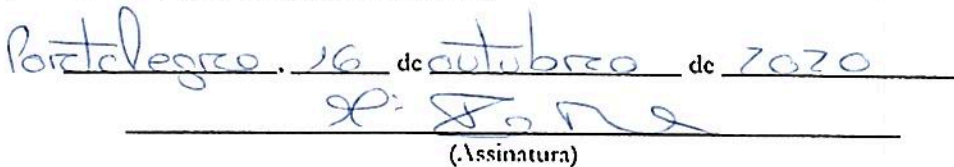 Portalegre, 16 de outubro de 2020
(Assinatura)